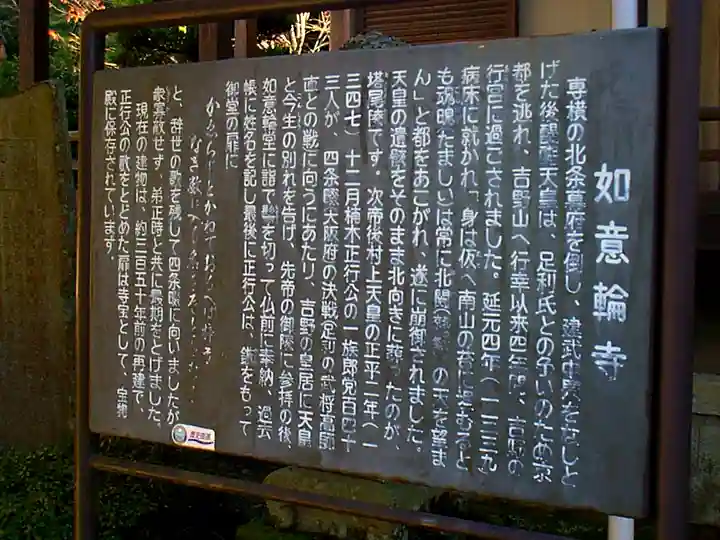 如意輪寺
専横の北条幕府を倒し、建武中興をなしと
げた後醍醐天皇は、足利氏との争いのため京
都を逃れ、吉野山へ行幸以来四年間、吉野の
行宮に過ごされました。延元四年(一三三九
病床に就かれ「身は仮へ南山の苔に埋むると
も魂魄(たましい)は常に北闕の天を望ま
ん」と都をあこがれ、遂に崩御されました。
天皇の遺骸をそのまま北向きに葬ったのが、
塔尾陵です。次帝後村上天皇の正平二年(一
三四七)十二月楠木正行公の一族郎党百四十
三人が、四条畷(大阪府)の決戦(足利の武将高師
直との戦)に向うにあたり、吉野の皇居に天皇
と今生の別れを告げ、先帝の御陵に参拝の後
如意輪堂に詣で髻を切って仏前に奉納、過去
帳に姓名を記し最後に正行公は、鏃をもって
御堂の扉に
かゑらじとかねておもへば梓弓
なき数に入る名をぞ
と、辞世の歌を残して四条畷に向いましたが
衆寡敵せず、弟正時と共に最期をとげました。
現在の建物は、約三百五十年前の再建で、
正行公の歌をとどめた扉は寺宝として、宝物
殿に保存されています。